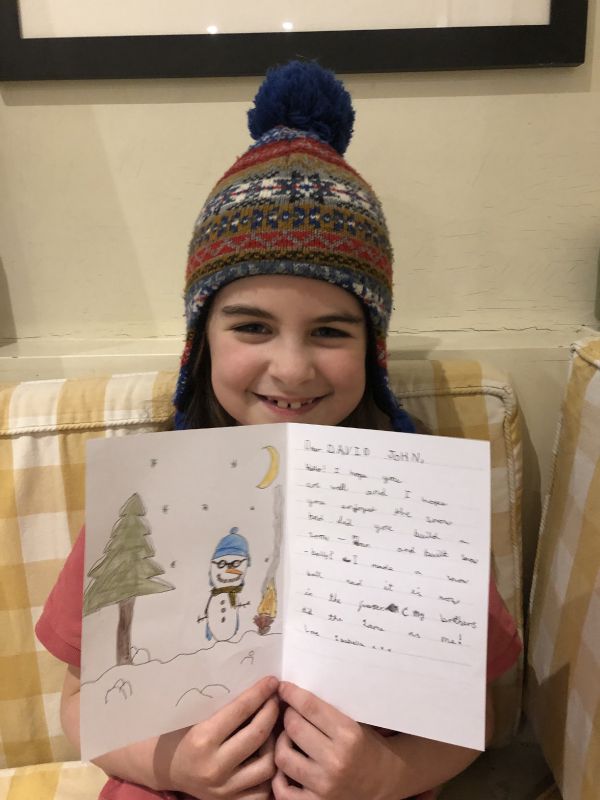 Dear DAVID JOHN,
Hello! I hope you
are well and I hope
you enjoyed the snow
but did you build a
snow - and built snow
- balls? I made a snow
ball and it is now
in the freezer my brothers
did the same as me!
love Isabella x x x